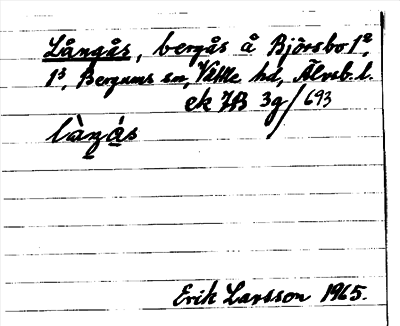 Långås, bergås å Björsbo 1²,
1³, Bergums sn, Vättle hd, Älvsb. l.
ek JB 3g/693
làŋás
Erik Larsson 1965.